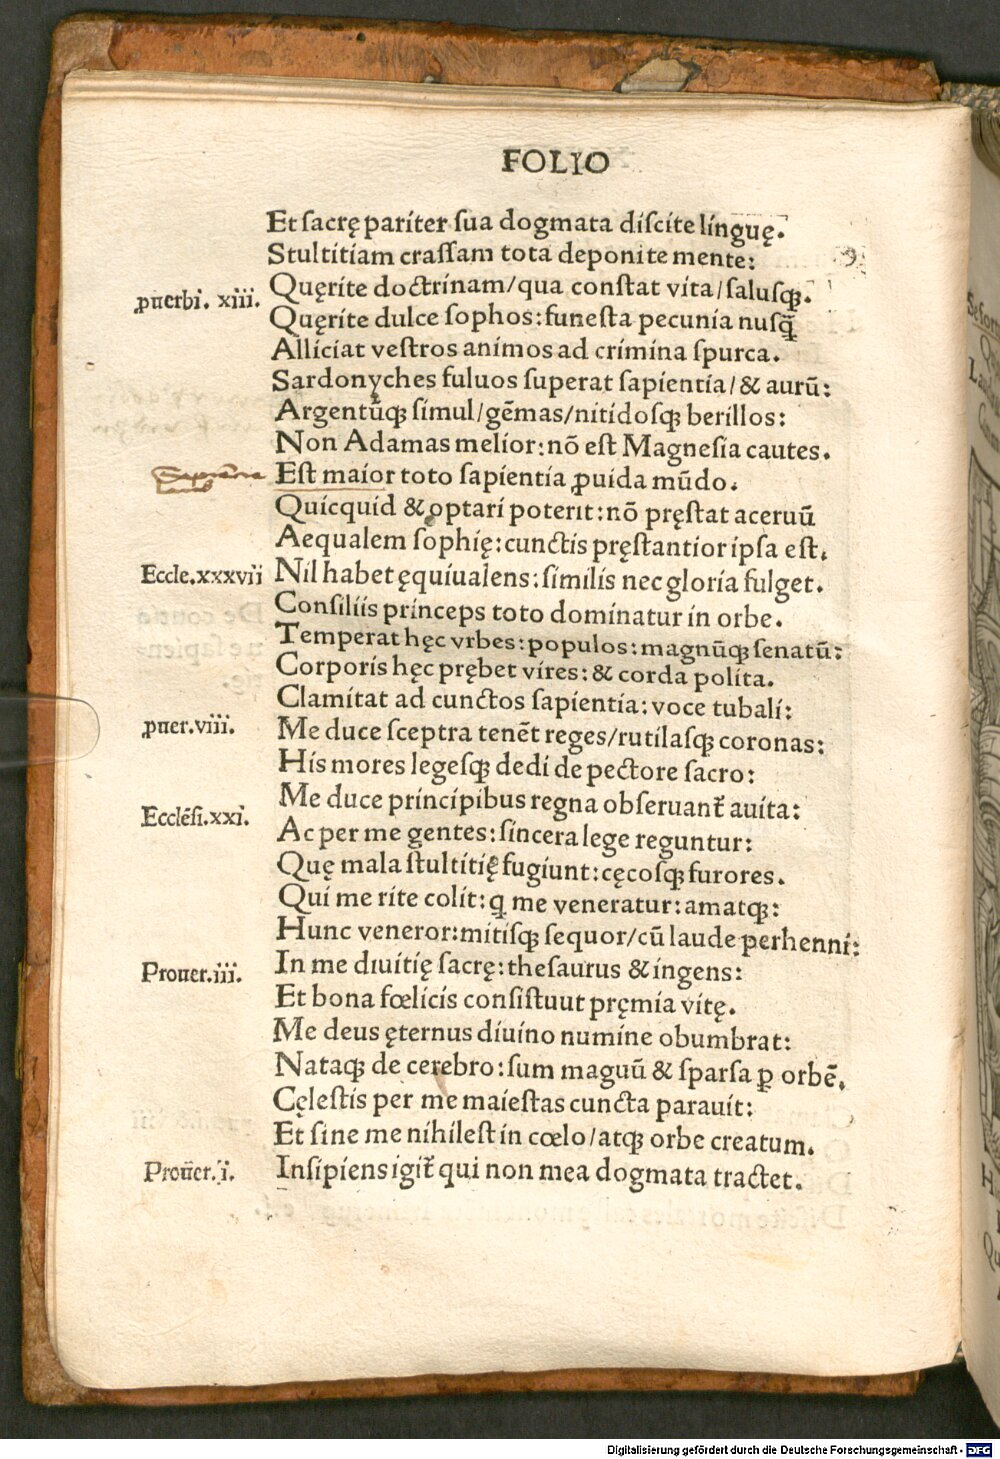 FOLIO
Et sacrę pariter sua dogmata discite linguę.
Stultitiam crassam tota deponite mente:
ꝓuerbi. xiii. Quęrite doctrinam/qua constat vita/salusqꝫ.
Quęrite dulce sophos:funesta pecunia nusq̄
Alliciat vestros animos ad crimina spurca.
Sardonyches fuluos superat sapientia/& aurū:
Argentūqꝫ simul/gēmas/nitidosqꝫ berillos:
Non Adamas melior:nō est Magnesia cautes.
Est maior toto sapientia ꝓuida mūdo.
Quicquid & optari poterit:nō pręstat aceruū
Aequalem sophię:cunctis pręstantior ipsa est.
Eccle.xxxvii Nil habet ęquiualens:similis nec gloria fulget.
Consiliis princeps toto dominatur in orbe.
Temperat hęc vrbes:populos:magnūqꝫ senatū:
Corporis hęc prębet vires:& corda polita.
Clamitat ad cunctos sapientia:voce tubali:
ꝓuer.viii. Me duce sceptra tenēt reges/rutilasqꝫ coronas:
His mores legesqꝫ dedi de pectore sacro:
Me duce principibus regna obseruant᷑ auita:
Ecclēsi.xxi. Ac per me gentes:sincera lege reguntur:
Quę mala stultitię fugiunt:cęcosqꝫ furores.
Qui me rite colit:q me veneratur:amatqꝫ:
Hunc veneror:mitisqꝫ sequor/cū laude perhenni:
Prouer.iii. In me diuitię sacrę:thesaurus & ingens:
Et bona fœlicis consistuut pręmia vitę.
Me deus ęternus diuino numine obumbrat:
Nataqꝫ de cerebro:sum maguū & sparsa ꝑ orbē.
Cęlestis per me maiestas cuncta parauit:
Et sine me nihil est in cœlo/atqꝫ orbe creatum.
Prouēr.i. Insipiens igit᷑ qui non mea dogmata tractet.
Digitalisierung gefördert durch die Deutsche Forschungsgemeinschaft - DFG